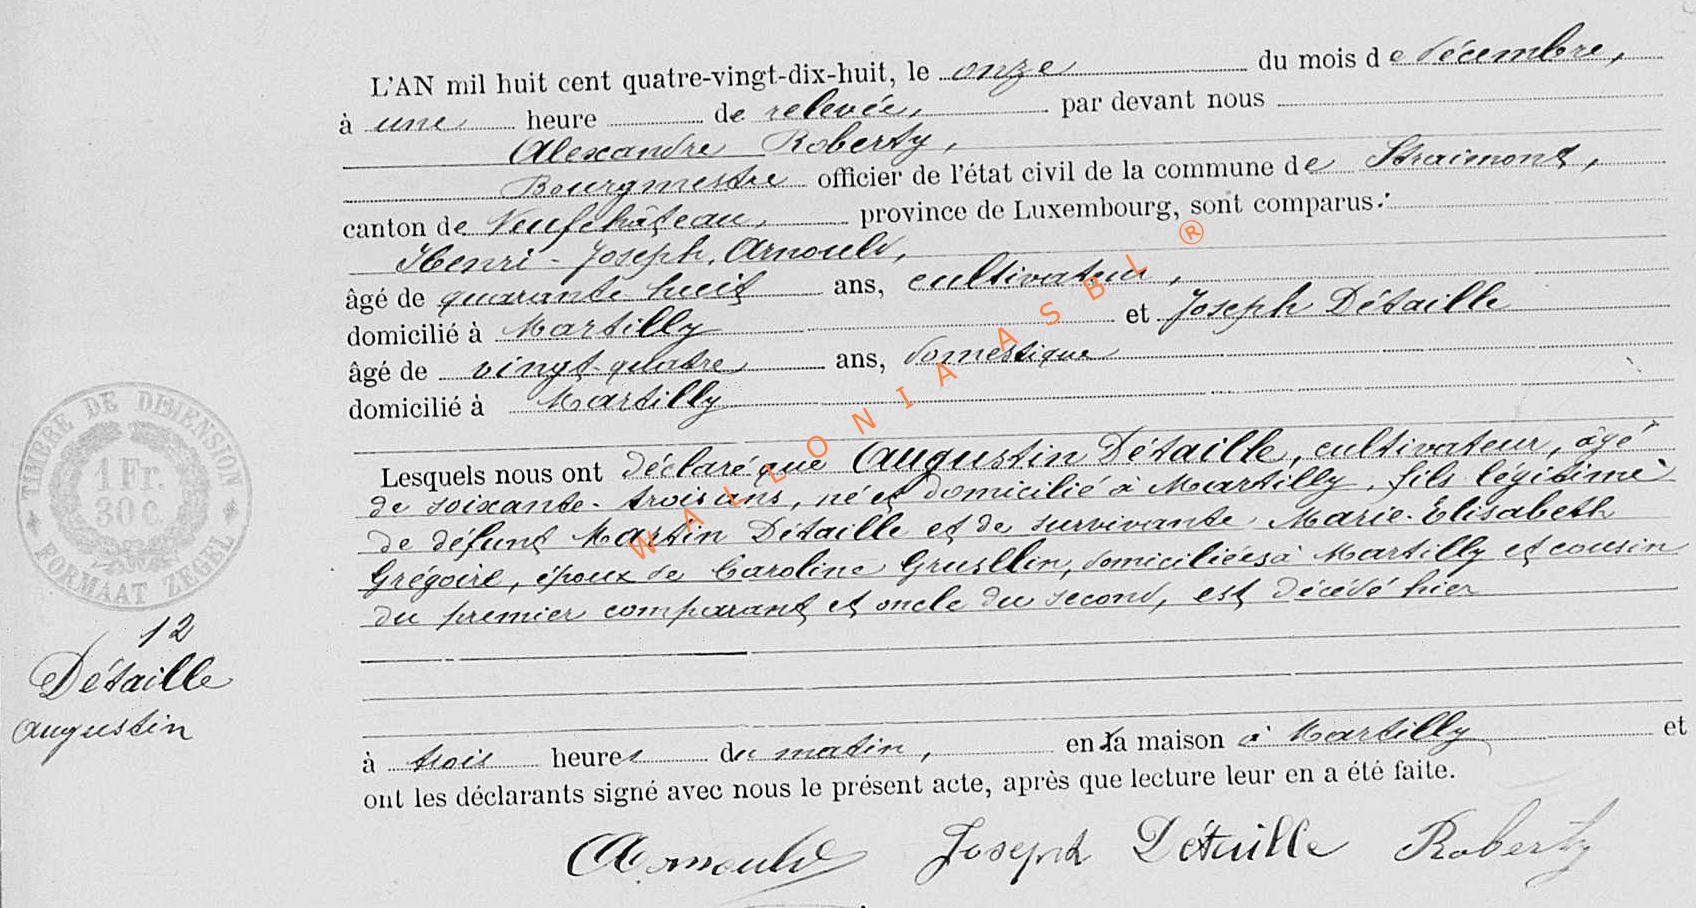 L'AN mil huit cent quatre-vingt-dix-huit, le onze du mois de décembre,
à une heure de relevée, par devant nous
Alexandre Roberty,
Bourgmestre officier de l'état civil de la commune de Straimont,
canton de Neufchâteau, province de Luxembourg, sont comparus:
Henri-Joseph, Arnould,
âgé de quarante huit ans, cultivateur,
domicilié à Martilly et Joseph Détaille
âgé de vingt-quatre ans, domestique
domicilié à Martilly
Lesquels nous ont déclaré que Augustin Détaille, cultivateur, âgé
de soixante-trois ans, né et domicilié à Martilly, fils légitime
de défunt Martin Détaille et de survivante Marie-Elisabeth
Grégoire, époux de Caroline Gruslin, domiciliées à Martilly et cousin
du premier comparant et oncle du second, est décédé hier
à trois heures du matin, en la maison à Martilly et
ont les déclarants signé avec nous le présent acte, après que lecture leur en a été faite.
Arnould Joseph Détaille Roberty
TIMBRE DE DIMENSION
1 Fr.
30 C.
FORMAAT ZEGEL
12
Détaille
Augustin
WALLONIA ASBL ®